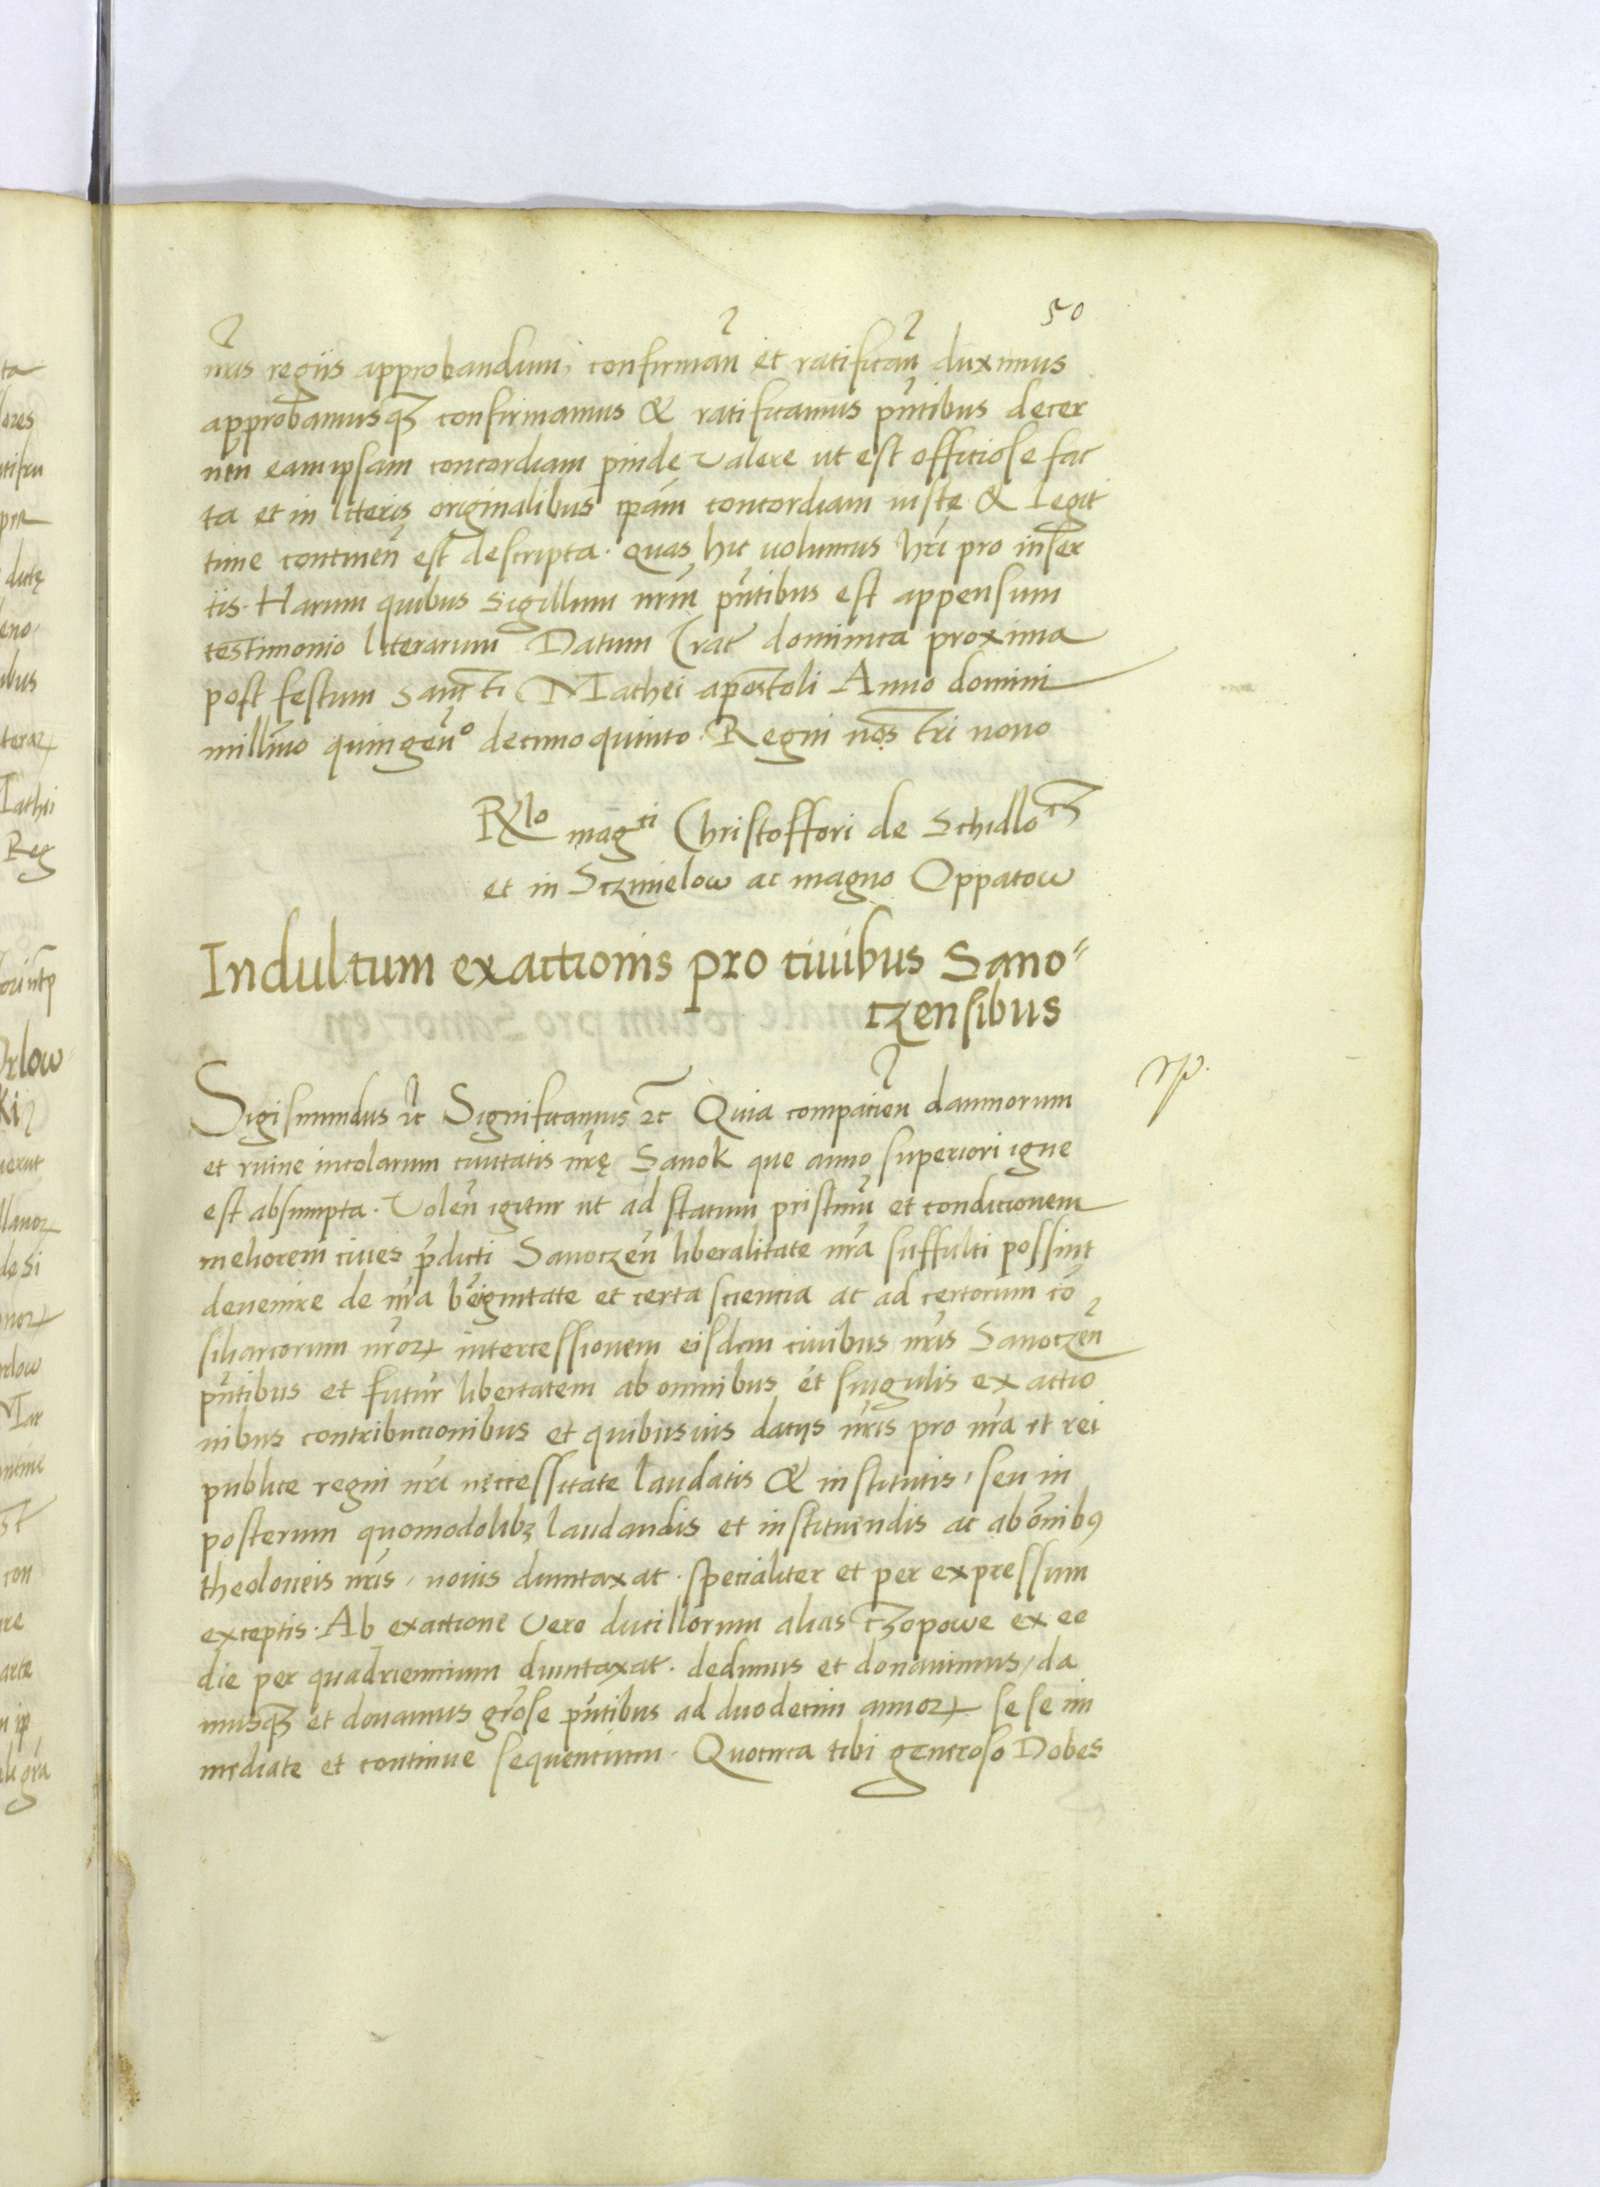 50
nris regiis approbandum, confirman̄ et ratifican̄ duximus
approbamusqȝ confirmamus & ratificamus pn̄tibus decer
nen eam ipsam concordiam pinde valere ut est officiose fac
ta et in literis originalibus ip̄am concordiam iuste & legit
time continen̄ est descripta. quas hic uolumus hr̄i pro inser
tis. Harum quibus sigillum nr̄m pn̄tibus est appensum
testimonio literarum Datum Crac̄ dominica proxima
post festum sancti Mathei apostoli Anno domini
mill̄mo quingen̄º decimo quinto. Regni nostri nono
Rlo magci Christoffori de Schidlo
et in Sczmielow ac magno Oppatow
Indultum exactionis pro ciuibus Sano
czensibus
Sigismundus ꝛc̄ Significamus ꝛc̄ Quia compacien̄ damnorum
et ruine incolarum ciuitatis nr̄ę Sanok que anno superiori igne
est absumpta. Volen̄ igitur ut ad statum pristinū et condicionem
meliorem ciues p̄dicti Sanoczen̄ liberalitate nr̄a suffulti possint
deuenire de nr̄a bēignitate et certa sciencia ac ad certorum cō
siliariorum nr̄oꝝ intercessionem eisdem ciuibus nr̄is Sanoczen̄
pn̄tibus et futur̄ libertatem ab omnibus et singulis exactio
nibus contribucionibus et quibusuis datijs nr̄is pro nr̄a et rei
publice regni nr̄i necessitate laudatis & institutis, seu in
posterum quomodolibȝ laudandis et instituendis ac ab om̄ibꝰ
theoloneis nr̄is, nouis dumtaxat. specialiter et per expressum
exceptis. Ab exactione vero ducillorum alias czopowe ex ee
die per quadriennium dumtaxat. dedimus et donauimus, da
musqȝ et donamus gr̄ose pn̄tibus ad duodecim annoꝝ se se im
mediate et continue sequencium. Quocirca tibi generoso Dobes